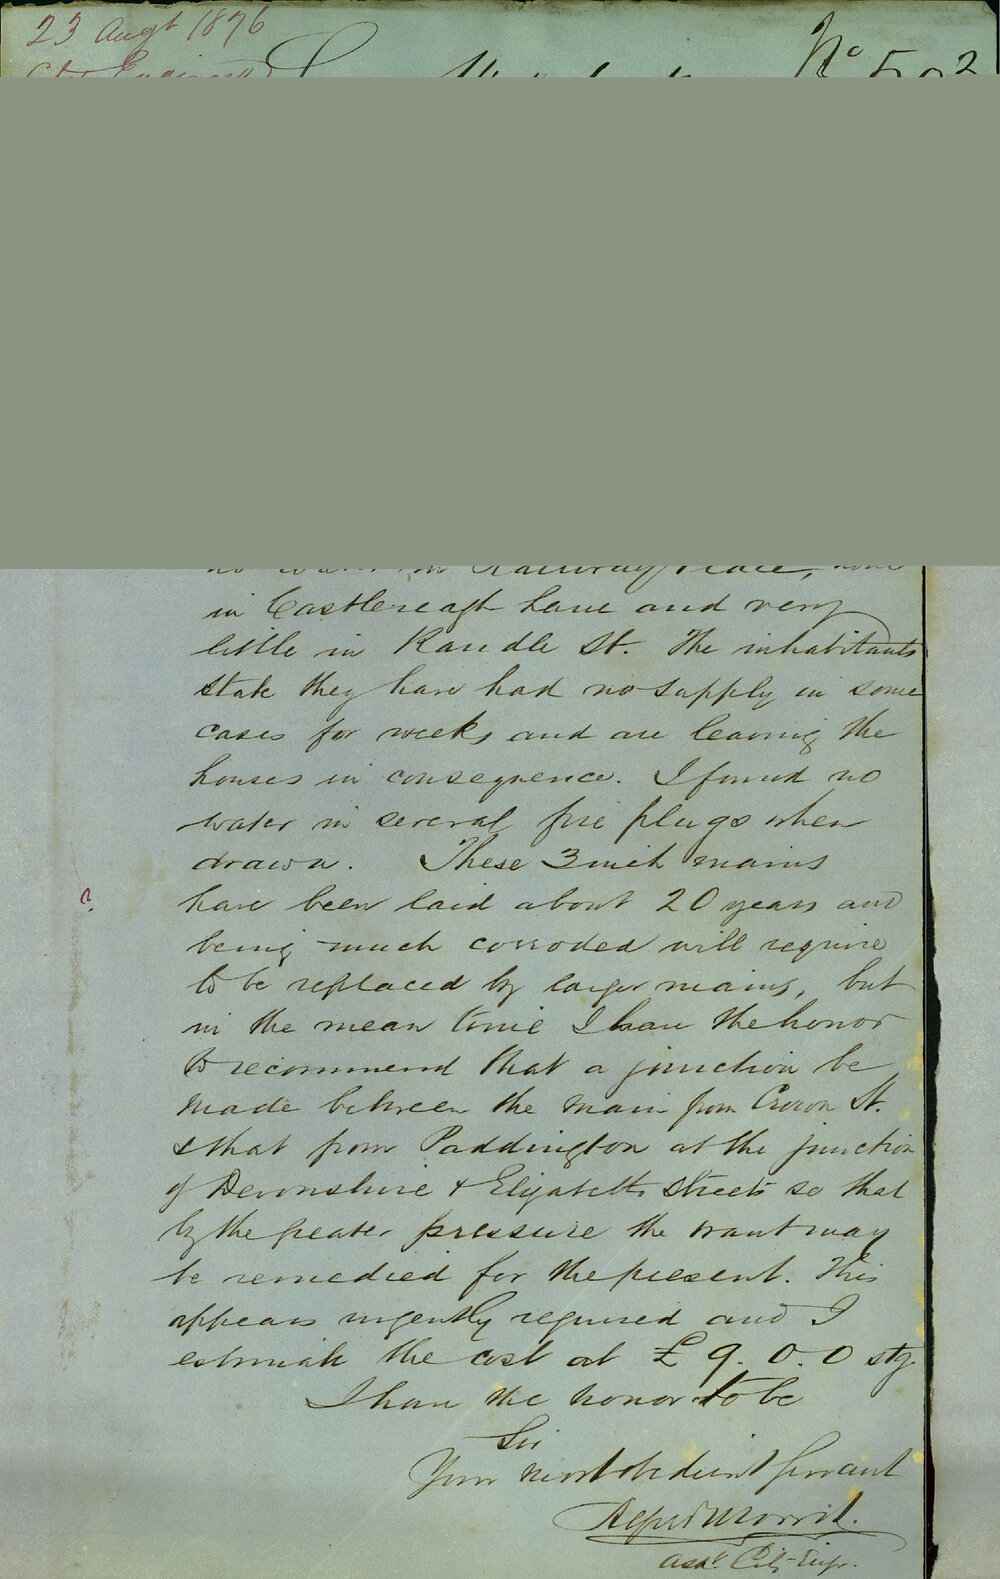 23 Augt 1876
No 592
no water in Railway Place, none
in Castlereagh Lane and very
little in Randle St. The inhabitants
state they have had no supply in some
cases for weeks and are leaving the
houses in consequence. I found no
water in several fire plugs when
drawn. These 3 inch mains
?
have been laid about 20 years and
being much corroded will require
to be replaced by larger mains, but
in the mean time I have the honor
to recommend that a junction be
made between the main from Crown St.
& that from Paddington at the junction
of Devonshire & Elizabeth Streets so that
by the greater pressure the want may
be remedied for the present. This
appears urgently required and I
estimate the cost at £9.0.0 stg.
I have the honor to be
Sir
Your most obedient Servant
Alfred Morris.
Asst City Engr.